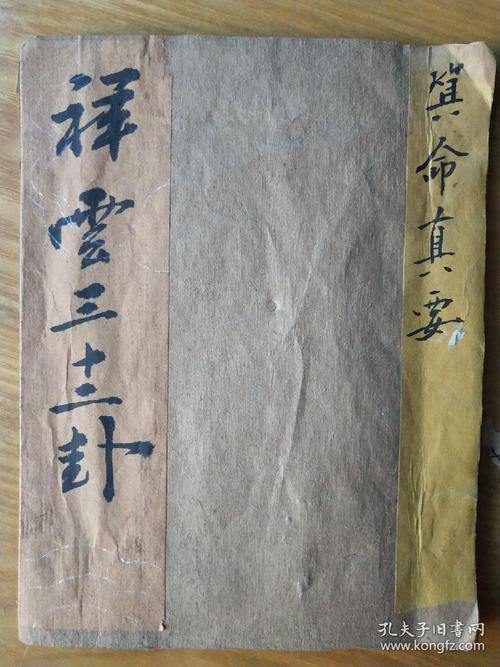 算命真要
祥雲三十二卦
孔夫子旧书网
www.kongfz.com